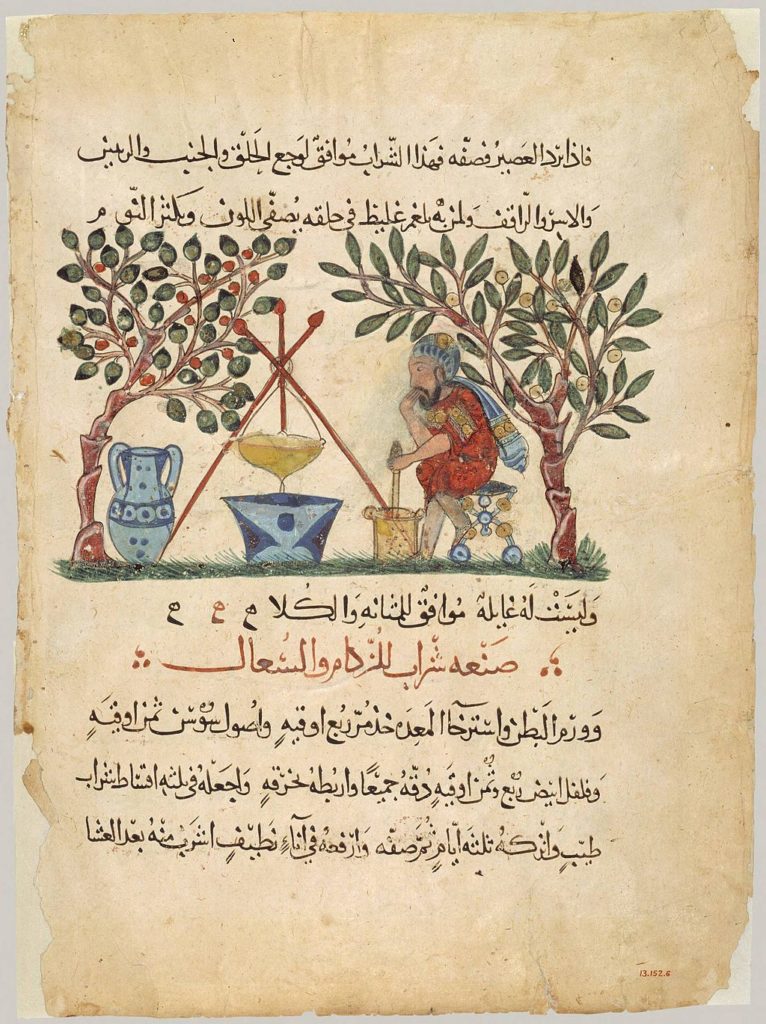 فاذا برد العصير فصفه فهذا الشراب موافق لوجع الحلق والجنب والريبس
والابنر والراقف ولمن به بلغم غليظ في حلقه يصفي اللون ويكثر النوم
وليست له غايله موافق للمثانه والكلا
صنعه شراب للزكام والسعال
وورم البطن واسترخا المعده خذ مر ربع اوقيه واصول سوسن ثمن اوقيه
وفلفل ابيض ربع وثمن اوقيه دقه جميعا واربطه بخرقه واجعله في ثلثه اقساط شراب
طيب واتركه ثلثه أيام ثم صفه وارفعه في اناء نظيف اشرب منه بعد العشا
13.152.6